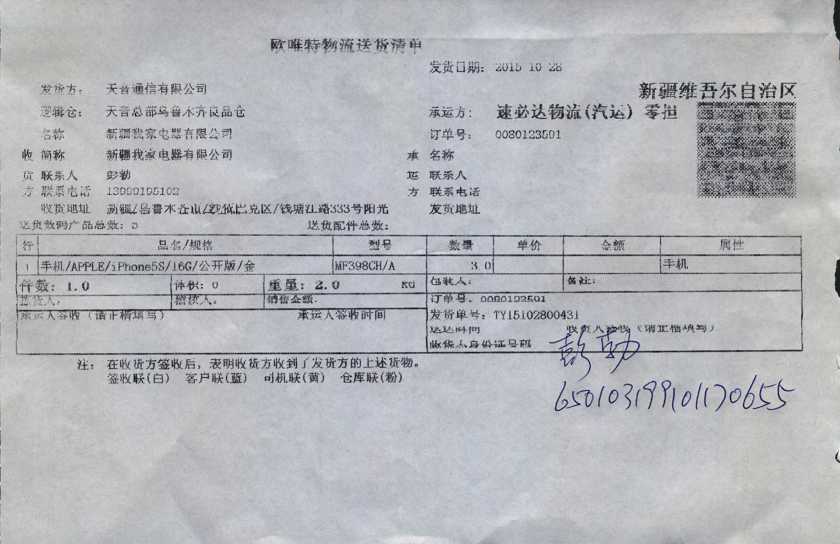 欧唯特物流送货清单
发货日期： 2015-10-28
新疆维吾尔自治区
发货方： 天音通信有限公司
逻辑仓： 天音总部乌鲁木齐良品仓 承运方： 速必达物流(汽运) 零担
名称 新疆我家电器有限公司 订单号： 0080123501
收 简称 新疆我家电器有限公司 承 名称
货 联系人 彭勃 运 联系人
方 联系电话 方 联系电话
收货地址 新疆/乌鲁木齐市/沙依巴克区/钱塘江路333号阳光 发货地址
送货数码产品总数： 3 送货配件总数：
行 品名/规格 型号 数量 单价 金额 属性
1 手机/APPLE/iPhone5S/16G/公开版/金 MF398CH/A 3.0 手机
件数： 1.0 体积： 0 重量： 2.0 KG 包装人： 备注：
拣货人： 销售金额： 订单号： 0080123501
承运人签收（请正楷填写） 承运人签收时间 发货单号： TY15102800431
送达时间 收货人签收（请正楷填写）
收货人身份证号码
彭勃
650103199101170655
注： 在收货方签收后，表明收货方收到了发货方的上述货物。
签收联(白) 客户联(蓝) 司机联(黄) 仓库联(粉)